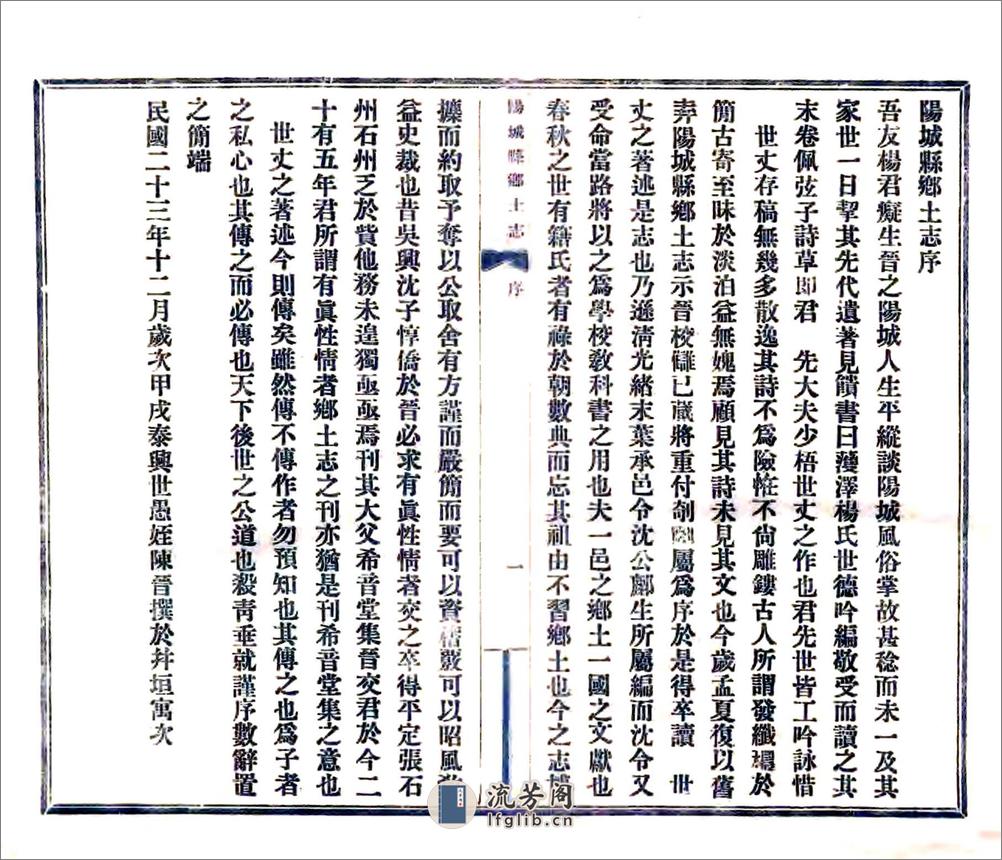 陽城縣鄉土志序
吾友楊君癡生晉之陽城人生平縱談陽城風俗掌故甚稔而未一及其
家世一日挈其先代遺著見饋書曰濩澤楊氏世德吟編敬受而讀之其
末卷佩弦子詩草即君　先大夫少梧世丈之作也君先世皆工吟詠惜
世丈存稿無幾多散逸其詩不爲險怪不尙雕鏤古人所謂發纖穠於
簡古寄至味於淡泊益無媿焉顧見其詩未見其文也今歲孟夏復以舊
弆陽城縣鄉土志示晉校讎已蕆將重付剞劂屬爲序於是得卒讀　世
丈之著述是志也乃遜淸光緒末葉承邑令沈公所屬編而沈令又
受命當路將以之爲學校敎科書之用也夫一邑之鄉土一國之文獻也
春秋之世有籍氏者有祿於朝數典而忘其祖由不習鄉土也今之志
陽城縣鄉土志　序　一
據而約取予奪以公取舍有方謹而嚴簡而要可以資稽覈可以昭風
益史裁也昔吳興沈子惇僑於晉必求有眞性情者交之卒得平定張石
州石州乏於貲他務未遑獨亟亟焉刊其大父希音堂集晉交君於今二
十有五年君所謂有眞性情者鄉土志之刊亦猶是刊希音堂集之意也
世丈之著述今則傳矣雖然傳不傳作者勿預知也其傳之也爲子者
之私心也其傳之而必傳也天下後世之公道也殺靑垂就謹序數辭置
之簡端
民國二十三年十二月歲次甲戌泰興世愚姪陳晉撰於幷垣寓次
流芳阁
lfglib.cn